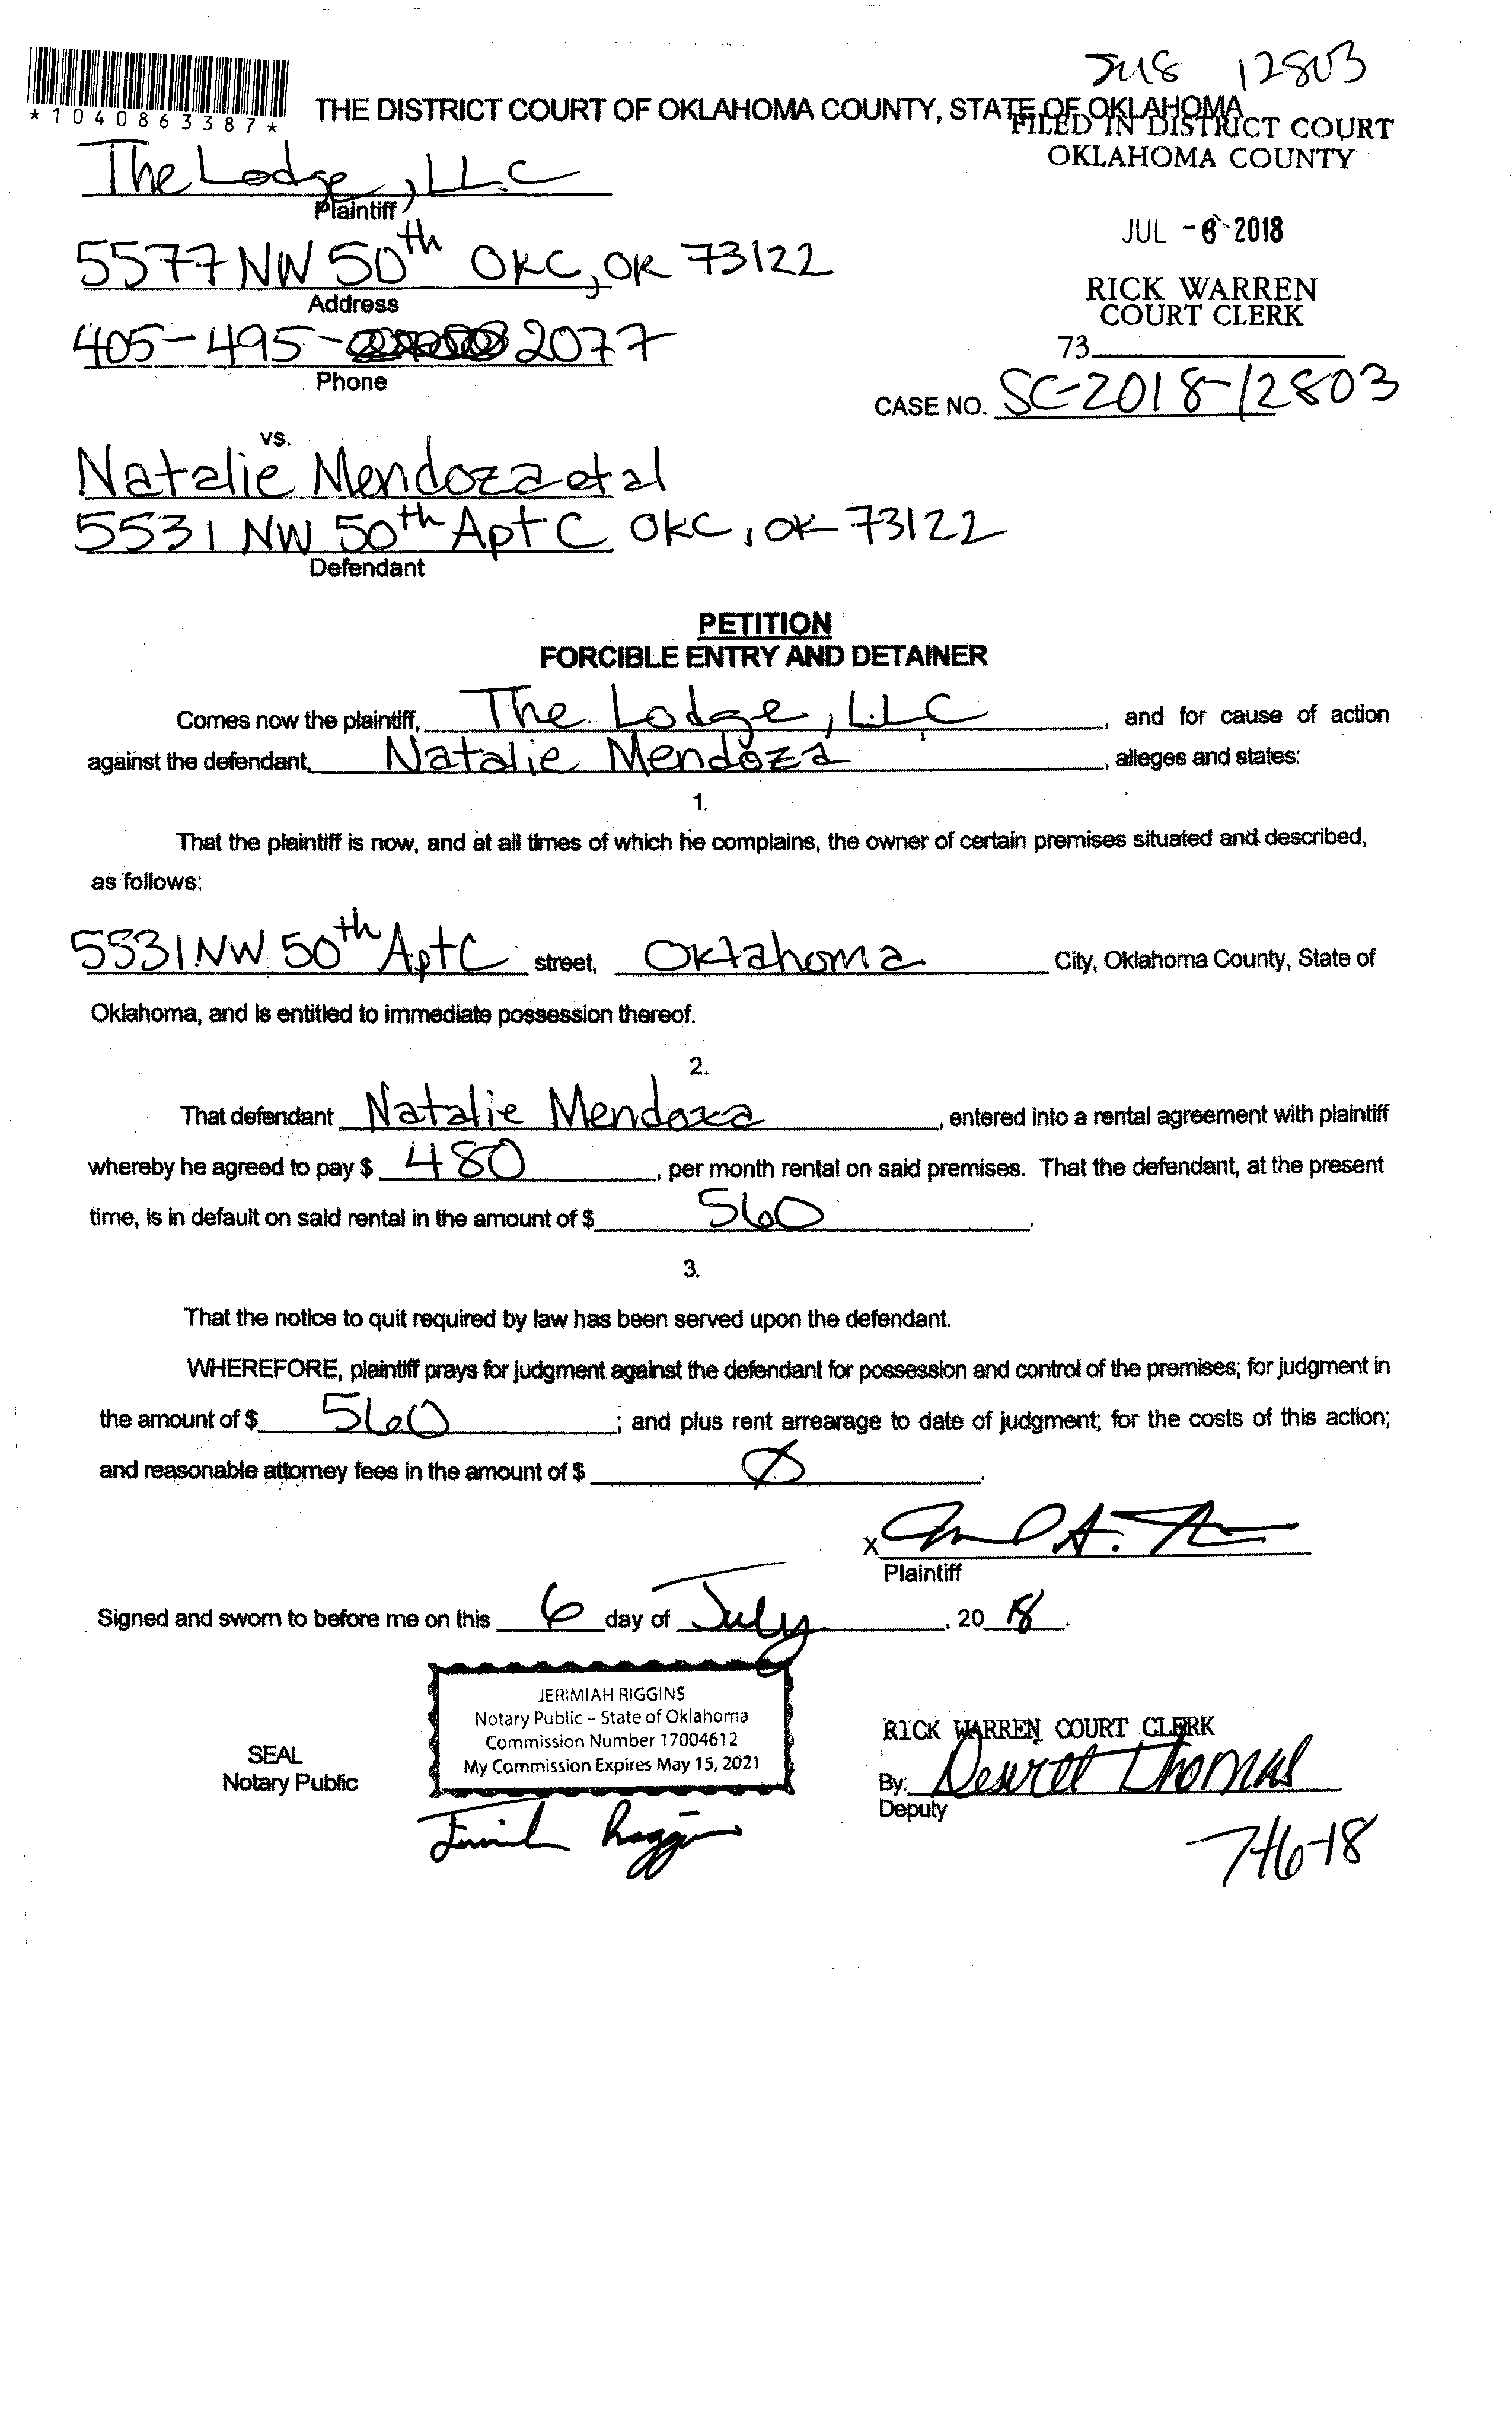 *1040863387*
THE DISTRICT COURT OF OKLAHOMA COUNTY, STATE OF OKLAHOMA
12803
FILED IN DISTRICT COURT
OKLAHOMA COUNTY
The Lodge, LLC
Plaintiff
JUL -6 2018
5577 NW 50th OKC, OK 73122
Address
RICK WARREN
COURT CLERK
405-495- 2077
Phone
73
CASE NO. SC-2018-12803
vs.
Natalie Mendoza et al
5531 NW 50th Apt C OKC, OK 73122
Defendant
PETITION
FORCIBLE ENTRY AND DETAINER
Comes now the plaintiff, The Lodge, LLC, and for cause of action
against the defendant, Natalie Mendoza, alleges and states:
1.
That the plaintiff is now, and at all times of which he complains, the owner of certain premises situated and described,
as follows:
5531 NW 50th Apt C street, Oklahoma City, Oklahoma County, State of
Oklahoma, and is entitled to immediate possession thereof.
2.
That defendant Natalie Mendoza, entered into a rental agreement with plaintiff
whereby he agreed to pay $ 480, per month rental on said premises. That the defendant, at the present
time, is in default on said rental in the amount of $ 560.
3.
That the notice to quit required by law has been served upon the defendant.
WHEREFORE, plaintiff prays for judgment against the defendant for possession and control of the premises; for judgment in
the amount of $ 560; and plus rent arrearage to date of judgment; for the costs of this action;
and reasonable attorney fees in the amount of $ Ø.
X
Plaintiff
Signed and sworn to before me on this 6 day of July, 20 18.
JERIMIAH RIGGINS
Notary Public – State of Oklahoma
Commission Number 17004612
My Commission Expires May 15, 2021
SEAL
Notary Public
RICK WARREN, COURT CLERK
By: Thomas
Deputy
7-16-18